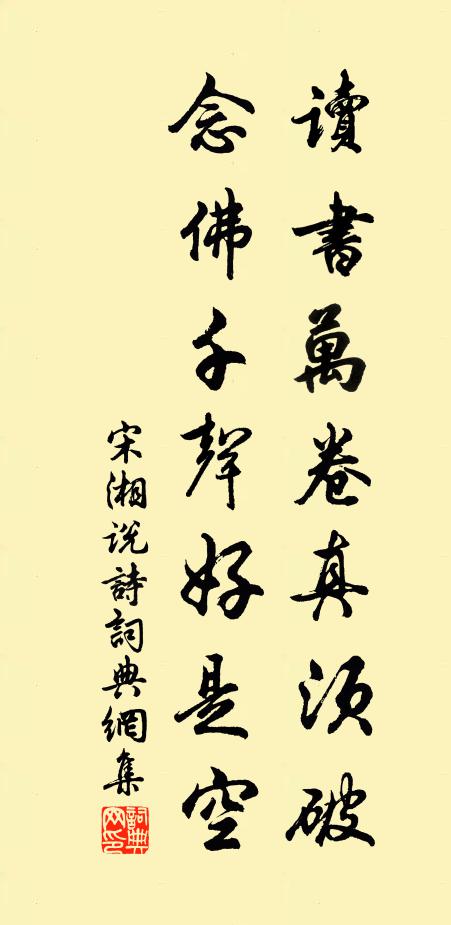 讀書萬卷真須破
念佛千聲好是空
宋湘说詩詞典網集
詞典網印